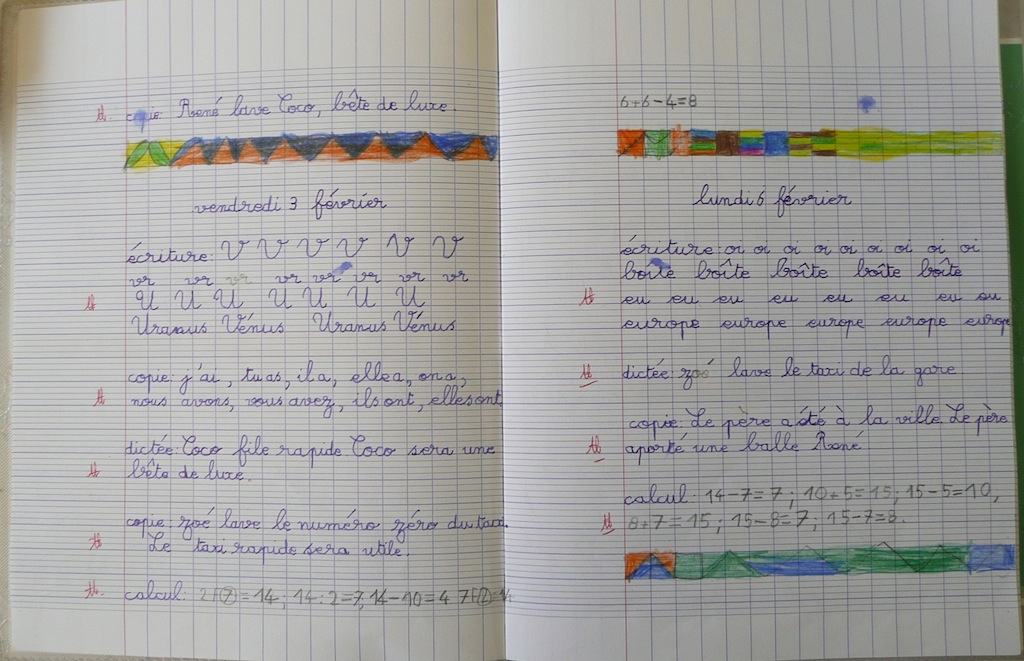 tb. copie: René lave Coco, bête de luxe.
vendredi 3 février
écriture: V V V V V V
vr vr vr vr vr vr vr vr
tb U U U U U U U
Uranus Vénus Uranus Vénus
copie: j'ai, tu as, il a, elle a, on a,
tb nous avons, vous avez, ils ont, elles ont
dictée: Coco file rapide. Coco sera une
tb bête de luxe.
copie: zoé lave le numéro zéro du taxi.
tb Le taxi rapide sera utile.
tb. calcul: 14; 14:2=7, 14-10=4
6+6-4=8
lundi 6 février
écriture: oi oi oi oi oi oi oi oi oi
boîte boîte boîte boîte boîte
tb eu eu eu eu eu eu eu eu
europe europe europe europe europe
tb dictée: zoé lave le taxi de la gare
copie: Le père a été à la ville. Le père
tb aporté une balle René
calcul: 14-7=7; 10+5=15; 15-5=10,
tb 8+7=15; 15-8=7; 15-7=8.